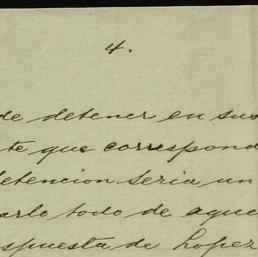 4.
de detener en sus
te que correspond
detencion seria un
arlo todo de ague
spuesta de Lopez